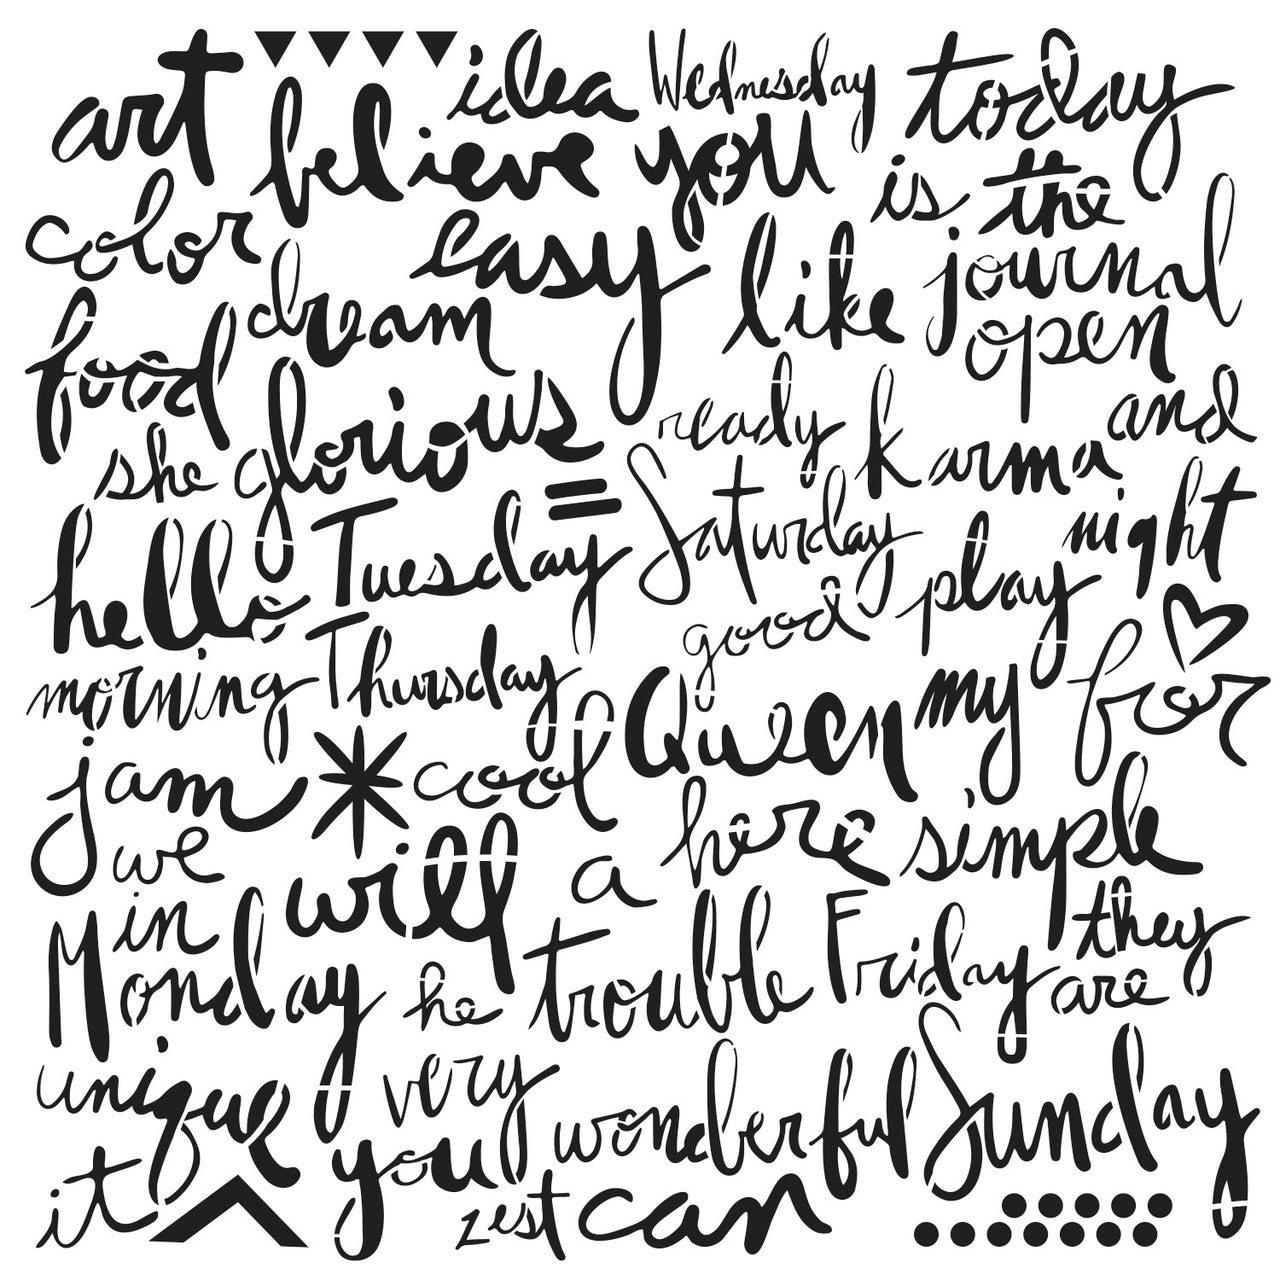 art believe idea Wednesday today
color easy you is the
dream like journal
food open
she glorious ready karma and
hello Tuesday Saturday play night
morning Thursday good my for
jam cool Queen
we will a here simple
in
Monday he trouble Friday they
are
unique very wonderful Sunday
it you zest can